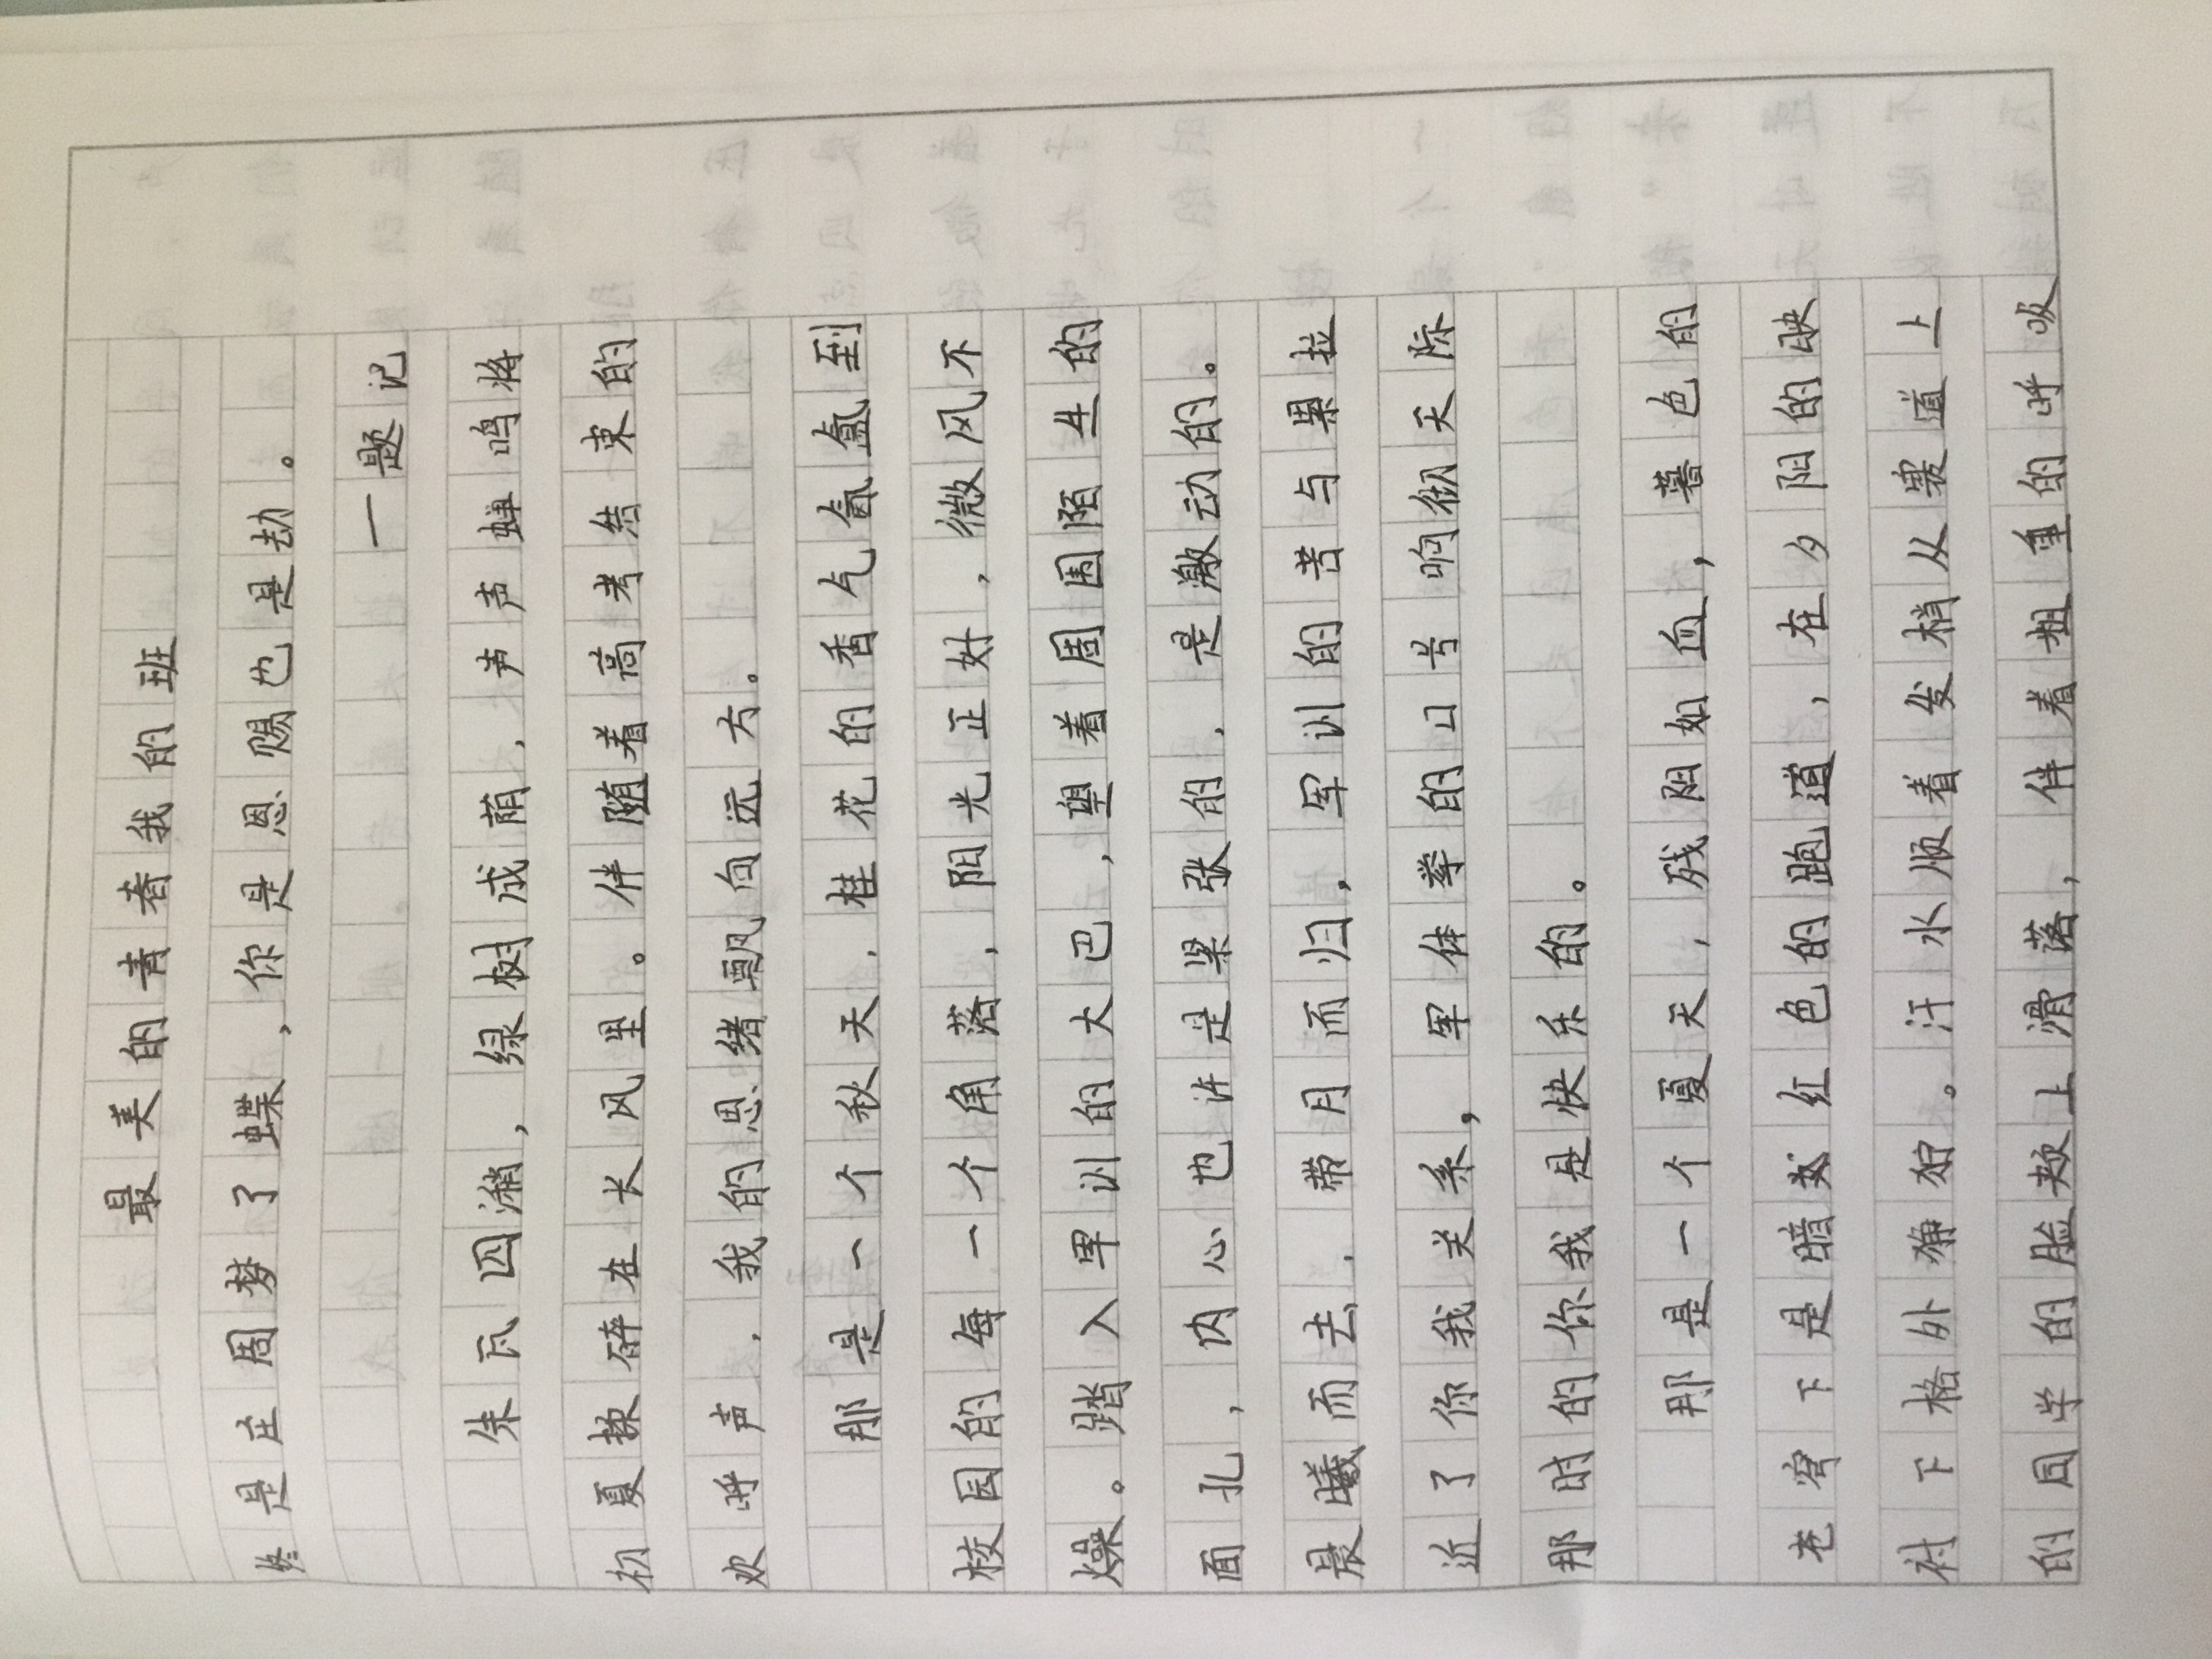 最美的青春我的班
终是庄周梦了蝶，你是恩赐也是劫。
一题记
朱瓦囚潲，绿树成荫，声声蝉鸣将
初夏揉碎在长风里。伴随着高考结束的
欢呼声，我的思绪飘向远方。
那是一个秋天，桂花的香气氤氲到
校园的每一个角落，阳光正好，微风不
燥。踏入军训的大巴，望着周围陌生的
面孔，内心也许是紧张的，是激动的。
晨曦而去，带月而归，军训的苦与累拉
近了你我关系，军体拳的口号响彻天际
那时的你我是快乐的。
那是一个夏天，残阳如血，暮色的
苍穹下是暗红色的跑道，在夕阳的映
衬下格外狰狞。汗水顺着发梢从裹道上
的同学的脸颊上滑落，伴着粗重的呼吸